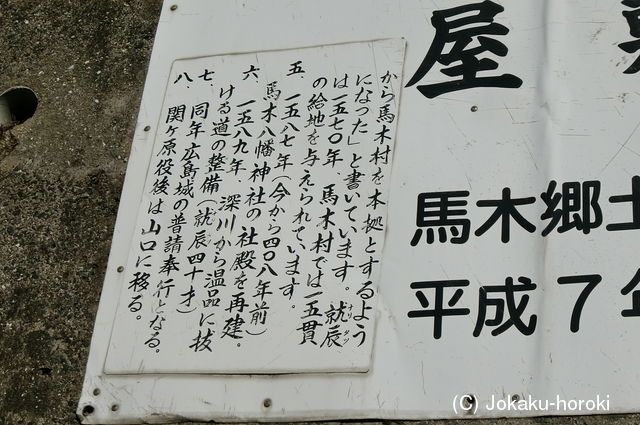 から馬木村を本拠とするよう
になった」と書いています。就辰
は一五七〇年、馬木村では一五貫
の給地を与えられています。
五、一五八七年(今から四〇八年前)
馬木八幡神社の社殿を再建。
六、一五八九年、深川から温品に抜
ける道の整備(就辰四十才)
七、同年広島城の普請奉行となる。
八、関ヶ原役後は山口に移る。
屋
馬木郷土
平成7年
(C) Jokaku-horoki